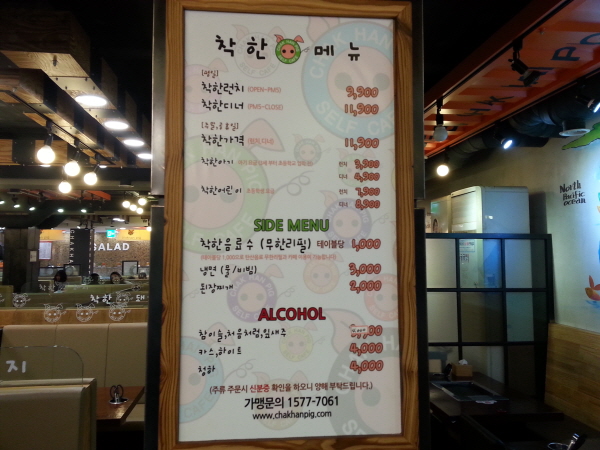 착한 메뉴
[평일]
착한런치 (OPEN~PM5) 9,900
착한디너 (PM5~CLOSE) 11,900
[주말,공휴일]
착한가격 11,900
착한아기 런치 3,900
디너 4,900
착한어린이 런치 7,900
디너 8,900
SIDE MENU
착한음료수 (무한리필) 테이블당 1,000
냉면 (물/비빔) 3,000
된장찌개 2,000
ALCOHOL
참이슬,처음처럼,잎새주
카스,하이트 4,000
청하 4,000
(주류 주문시 신분증 확인을 하오니 양해 부탁드립니다.)
가맹문의 1577-7061
www.chakhanpig.com
SALAD
착한 돼
지
North
Pacific
ocean